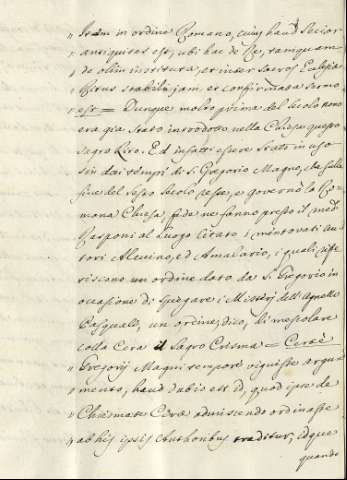 " Item in ordine Romano, cujus haud Secior
" antiquitas est, ubi hac de Re, tamquam
" de olim instituta, et inter Sacros Ecclesiæ
" Ritus stabilita jam, et confirmata sermo
" est = Dunque molto prima del Secolo nono
era già stato introdotto nella Chiesa questo
Sagro Rito. Ed infatti essere stato in uso
sin dai tempi di S. Gregorio Magno, che sulla
fine del Sesto Secolo resse, e governò la Ro
mana Chiesa, fede ne fanno presso il med.
Responi al Luogo Citato i mentovati Au
tori Alcuino, ed Amalario, i quali rife
riscono un ordine dato da S. Gregorio in
occasione di spiegare i Misterj dell'Agnello
Pasquale, un ordine, dico, di mescolare
colla Cera il Sagro Crisma = Ceræ
" Gregorij Magni tempore viguisse argu
" mento, haud dubio est id, quod ipse de
" Chrismate Ceræ admiscendo ordinasse
" ab his ipsis Authoribus traditur, idque
quando